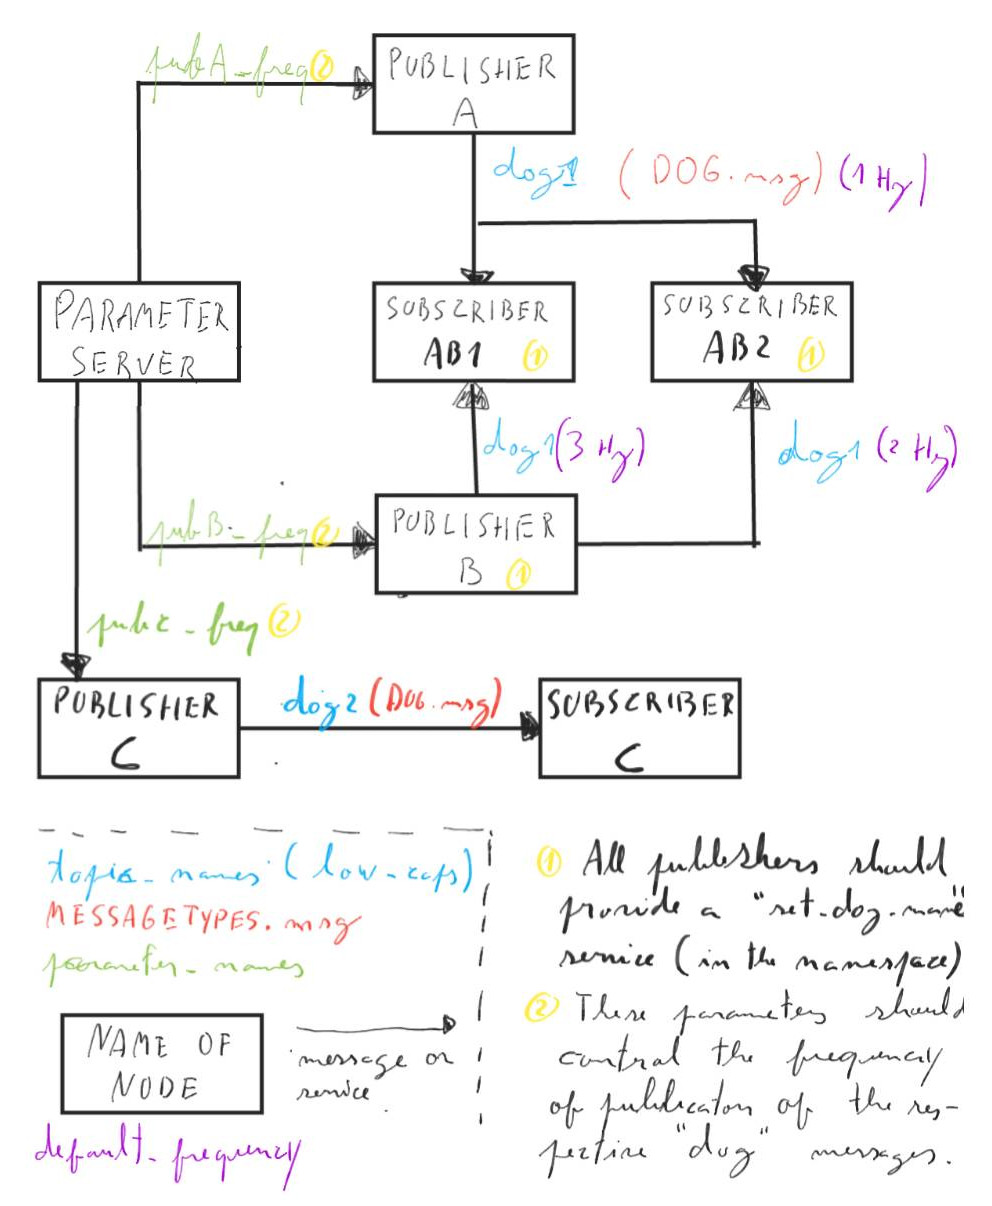 pubA_freq ②
PUBLISHER
A
dog1 (DOG.msg) (1 Hz)
PARAMETER
SERVER
SUBSCRIBER
AB1 ①
SUBSCRIBER
AB2 ①
dog1 (3 Hz)
dog1 (2 Hz)
pubB_freq ②
PUBLISHER
B ①
pubC_freq ②
PUBLISHER
C
dog2 (DOG.msg)
SUBSCRIBER
C
topic_names (low_caps)
MESSAGETYPES.msg
parameter_names
NAME OF
NODE
message or
service
default_frequency
① All publishers should
provide a "set_dog_name"
service (in the namespace)
② These parameters should
control the frequency
of publication of the res-
pective "dog" messages.